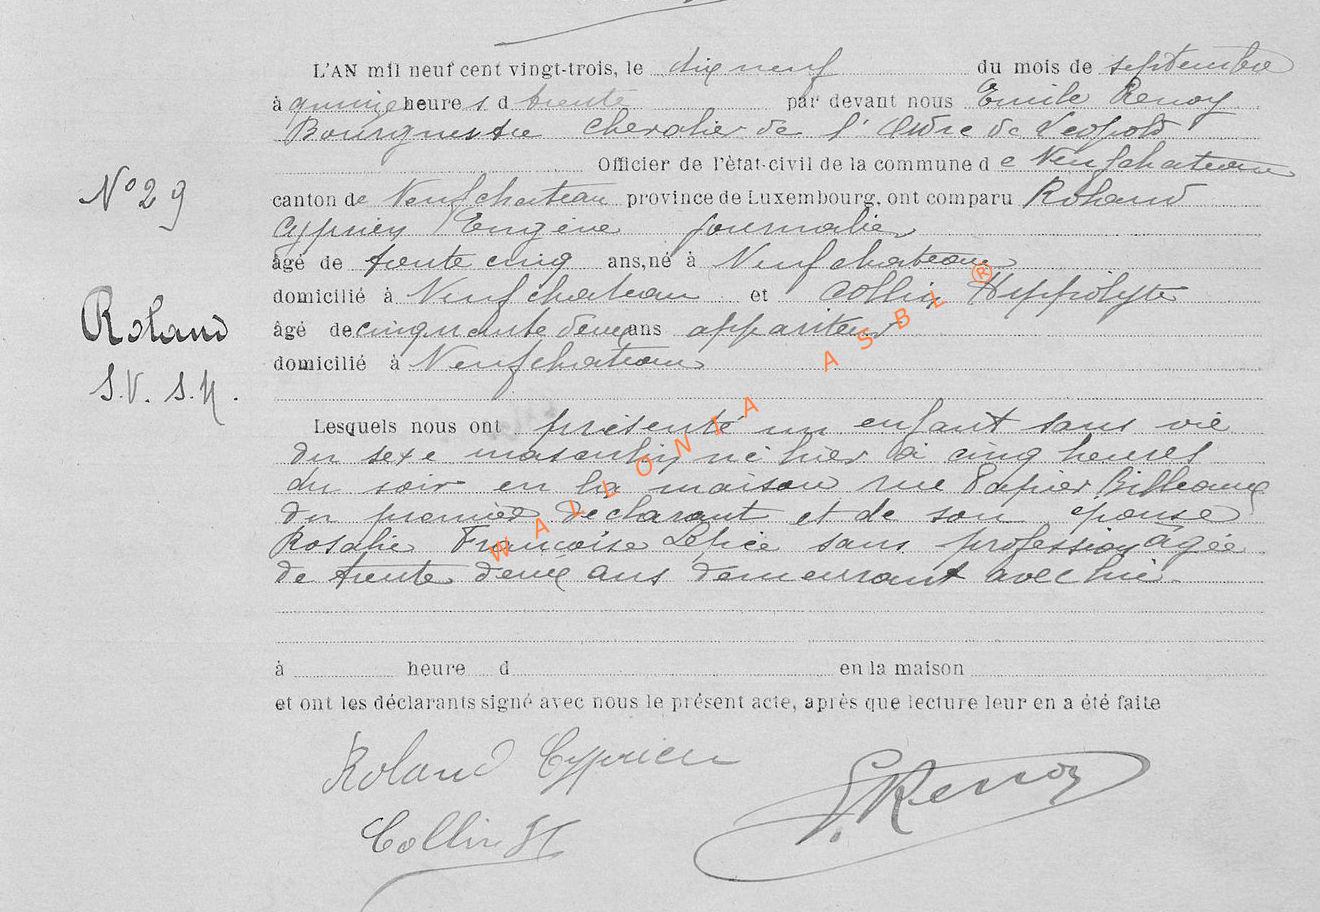 L'AN mil neuf cent vingt-trois, le dix neuf du mois de septembre
à quinze heure s d trente par devant nous Emile Renoy
Bourgmestre chevalier de l'Ordre de Léopold
Officier de l'état-civil de la commune d e Neufchateau
N° 29
canton de Neufchateau province de Luxembourg, ont comparu Roland
Cyprien Eugène journalier
âgé de trente cinq ans, né à Neufchateau
domicilié à Neufchateau et Collin Hippolyte
Roland
âgé de cinquante deux ans appariteur
domicilié à Neufchateau
S.V. S.M.
Lesquels nous ont présenté un enfant sans vie
du sexe masculin né hier à cinq heures
du soir en la maison rue Papier
du premier déclarant et de son épouse
Rosalie Françoise sans profession âgée
de trente deux ans demeurant avec lui.
à heure d en la maison
et ont les déclarants signé avec nous le présent acte, après que lecture leur en a été faite
Roland Cyprien
E. Renoy
Collin H
WALLONIA ASBL ®